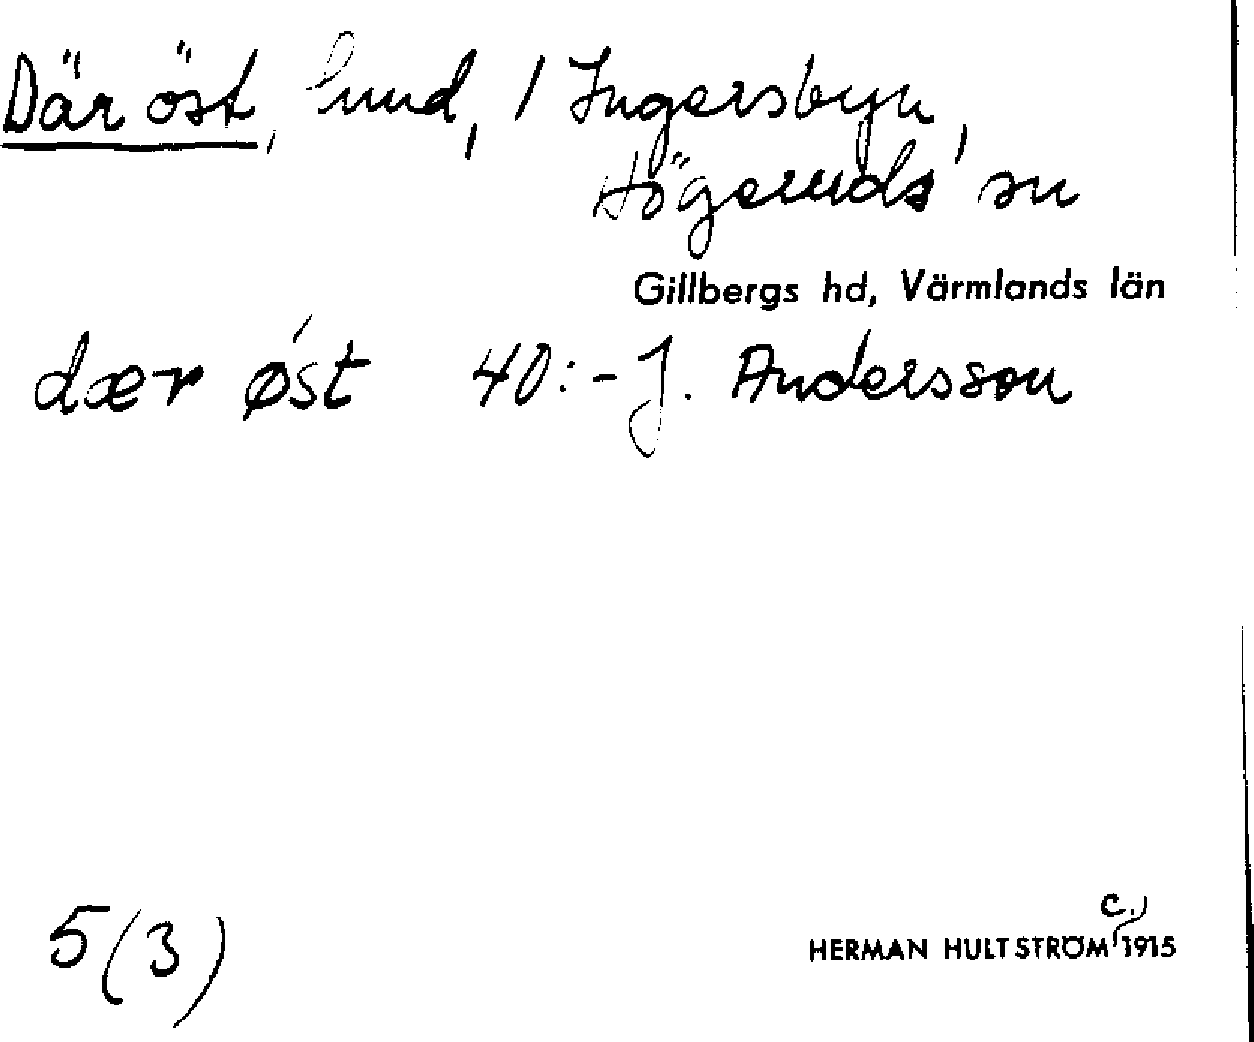 Där öst, lund, 1 Ingersbyn,
Högeruds sn
Gillbergs hd, Värmlands län
dær øst 40:- J. Andersson
5(3)
HERMAN HULTSTRÖM c. 1915